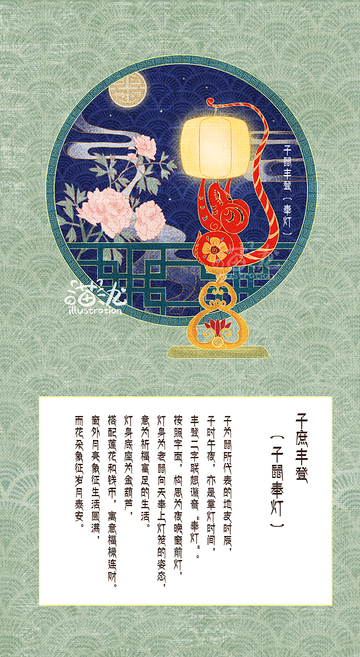 子鼠丰登〔奉灯〕
illustration
子庶丰登
〔子鼠奉灯〕
子为鼠所代表的地支时辰，
子时午夜，亦是掌灯时间，
丰登二字联想谐音“奉灯”。
按照字面，构思为夜晚窗前灯，
灯身为老鼠向天奉上灯笼的姿态，
意为祈福富足的生活。
灯身底座为金葫芦，
搭配莲花和钱币，寓意福禄连财。
窗外月亮象征生活圆满，
而花朵象征岁月泰安。